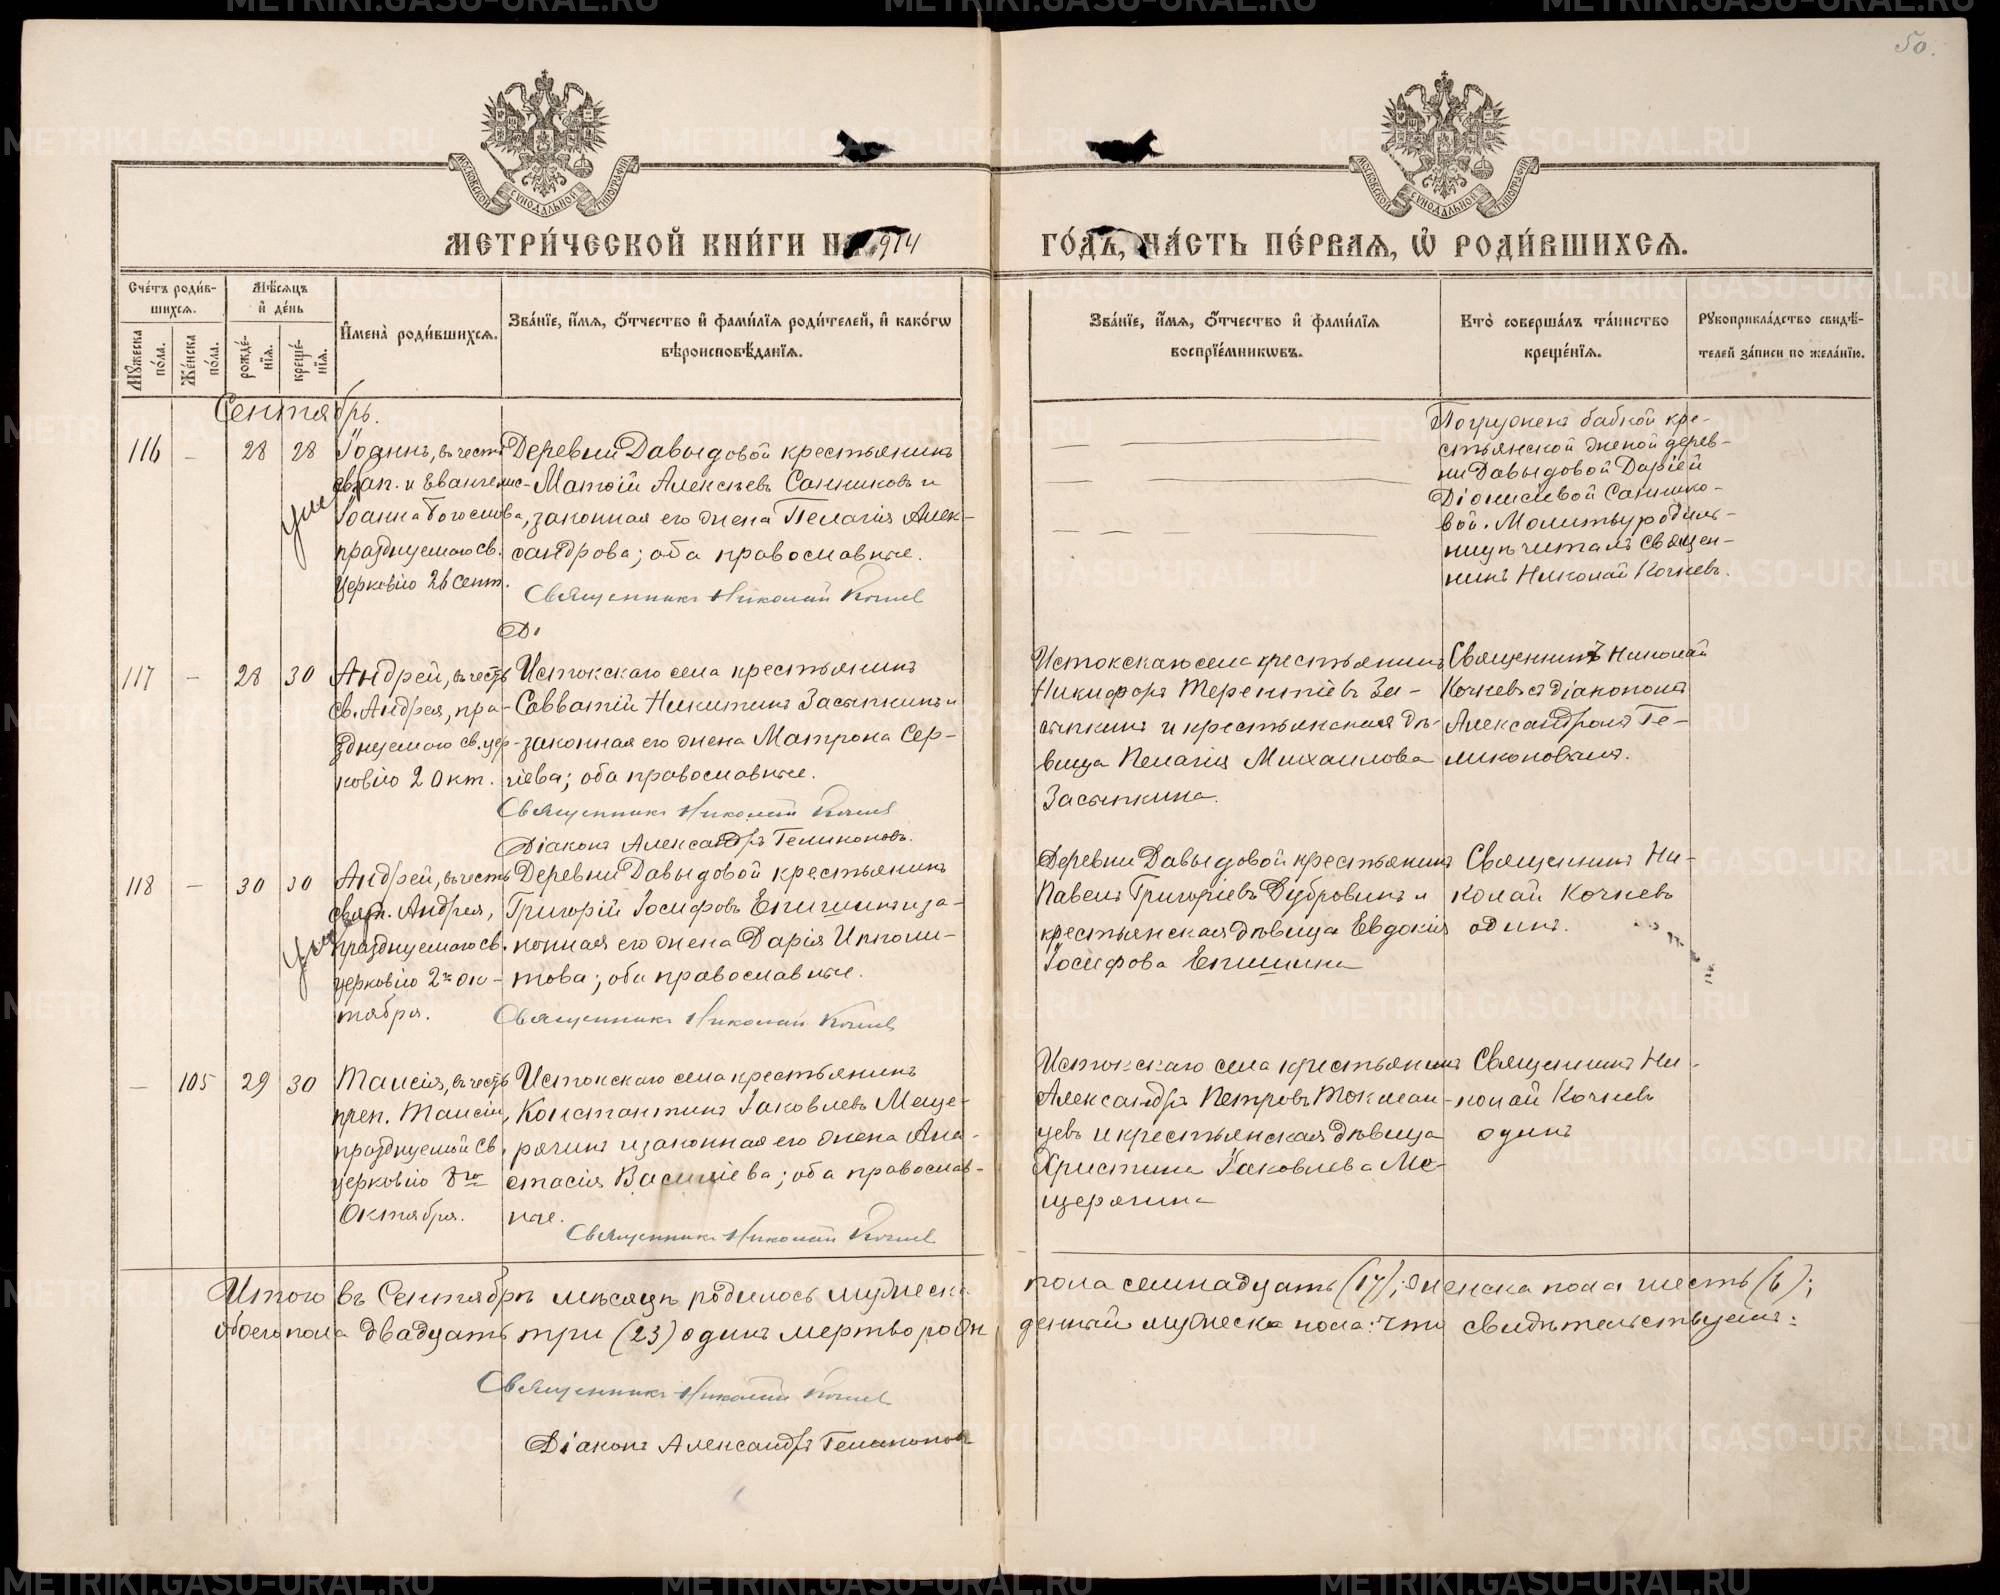 50.
МОСКОВСКОЙ СѴНОДАЛЬНОЙ ТИПОГРАФІИ
МОСКОВСКОЙ СѴНОДАЛЬНОЙ ТИПОГРАФІИ
МЕТРИ́ЧЕСКОЙ КНИ́ГИ НА 1914
ГО́ДЪ, ЧА́СТЬ ПЕ́РВАЯ, Ѡ҆ РОДИ́ВШИХСЯ.
Сче́тъ роди́в-
шихся.
Мѣ́сяцъ
и҆ де́нь
Мꙋ́жеска по́ла.
Же́нска по́ла.
рожде́-
нїя.
креще́-
нїя.
И҆мена̀ роди́вшихся.
Зва́нїе, и҆́мя, ѻ҆́тчество и҆ фами́лїя роди́телей, и҆ како́гѡ
вѣроисповѣ́данїя.
Зва́нїе, и҆́мя, ѻ҆́тчество и҆ фами́лїя
воспрїе́мникѡвъ.
Кто̀ соверша́лъ та́инство
креще́нїя.
Рꙋкоприкла́дство свидѣ́-
телей за́писи по жела́нїю.
Сентябрь.
116 – 28 28
Іоаннъ, въ честь
св. ап. и Евангелис-
Іоанна Богослова,
празднуемаго св.
церковію 26 Сент.
Деревни Давыдовой крестьянинъ
Матѳій Алексѣевъ Санниковъ и
законная его жена Пелагія Алек-
сандрова; оба православные.
Священникъ Николай Кочнев
Ді
Погруженъ бабкой кре-
стьянской женой дерев-
ни Давыдовой Дарiей
Діонисіевой Саннико-
вой. Молитву родиль-
ницѣ читалъ Священ-
никъ Николай Кочневъ.
117 – 28 30
Андрей, въ честь
св. Андрея, пра-
зднуемаго св. цер-
ковію 2 Окт.
Истокскаго села крестьянинъ
Савватій Никитинъ Засыпкинъ и
законная его жена Матрона Сер-
гіева; оба православные.
Священникъ Николай Кочнев
Діаконъ Александръ Геликоновъ.
Истокскаго села крестьянинъ
Никифоръ Терентіевъ За-
сыпкинъ и крестьянская дѣ-
вица Пелагія Михаилова
Засыпкина.
Священникъ Николай
Кочневъ съ діакономъ
Александромъ Ге-
ликоновымъ.
118 – 30 30
Андрей, въ честь
св. ап. Андрея,
празднуемаго св.
церковію 2го ок-
тября.
Деревни Давыдовой крестьянинъ
Григорій Іосифовъ Епишинъ и за-
конная его жена Дарія Ипполи-
това; оба православные.
Священникъ Николай Кочнев
Деревни Давыдовой крестьянинъ
Павелъ Григоріевъ Дубровинъ и
крестьянская дѣвица Евдокія
Іосифова Епишина
Священникъ Ни-
колай Кочневъ
одинъ.
– 105 29 30
Таисія, въ честь
преп. Таисіи,
празднуемой св.
церковію 8го
Октября.
Истокскаго села крестьянинъ
Константинъ Іаковлевъ Меще-
рягинъ и законная его жена Ана-
стасія Василіева; оба православ-
ные.
Священникъ Николай Кочнев
Истокскаго села крестьянинъ
Александръ Петровъ Токман-
цевъ и крестьянская дѣвица
Христина Іаковлева Ме-
щерягина
Священникъ Ни-
колай Кочневъ
одинъ
Итого въ Сентябрѣ мѣсяцѣ родилось мужеска
пола семнадцать (17); женска пола шесть (6);
обоего пола двадцать три (23) одинъ мертворож
денный мужеска пола: что свидѣтельствуемъ:
Священникъ Николай Кочнев
Діаконъ Александръ Геликоновъ
METRIKI.GASO-URAL.RU